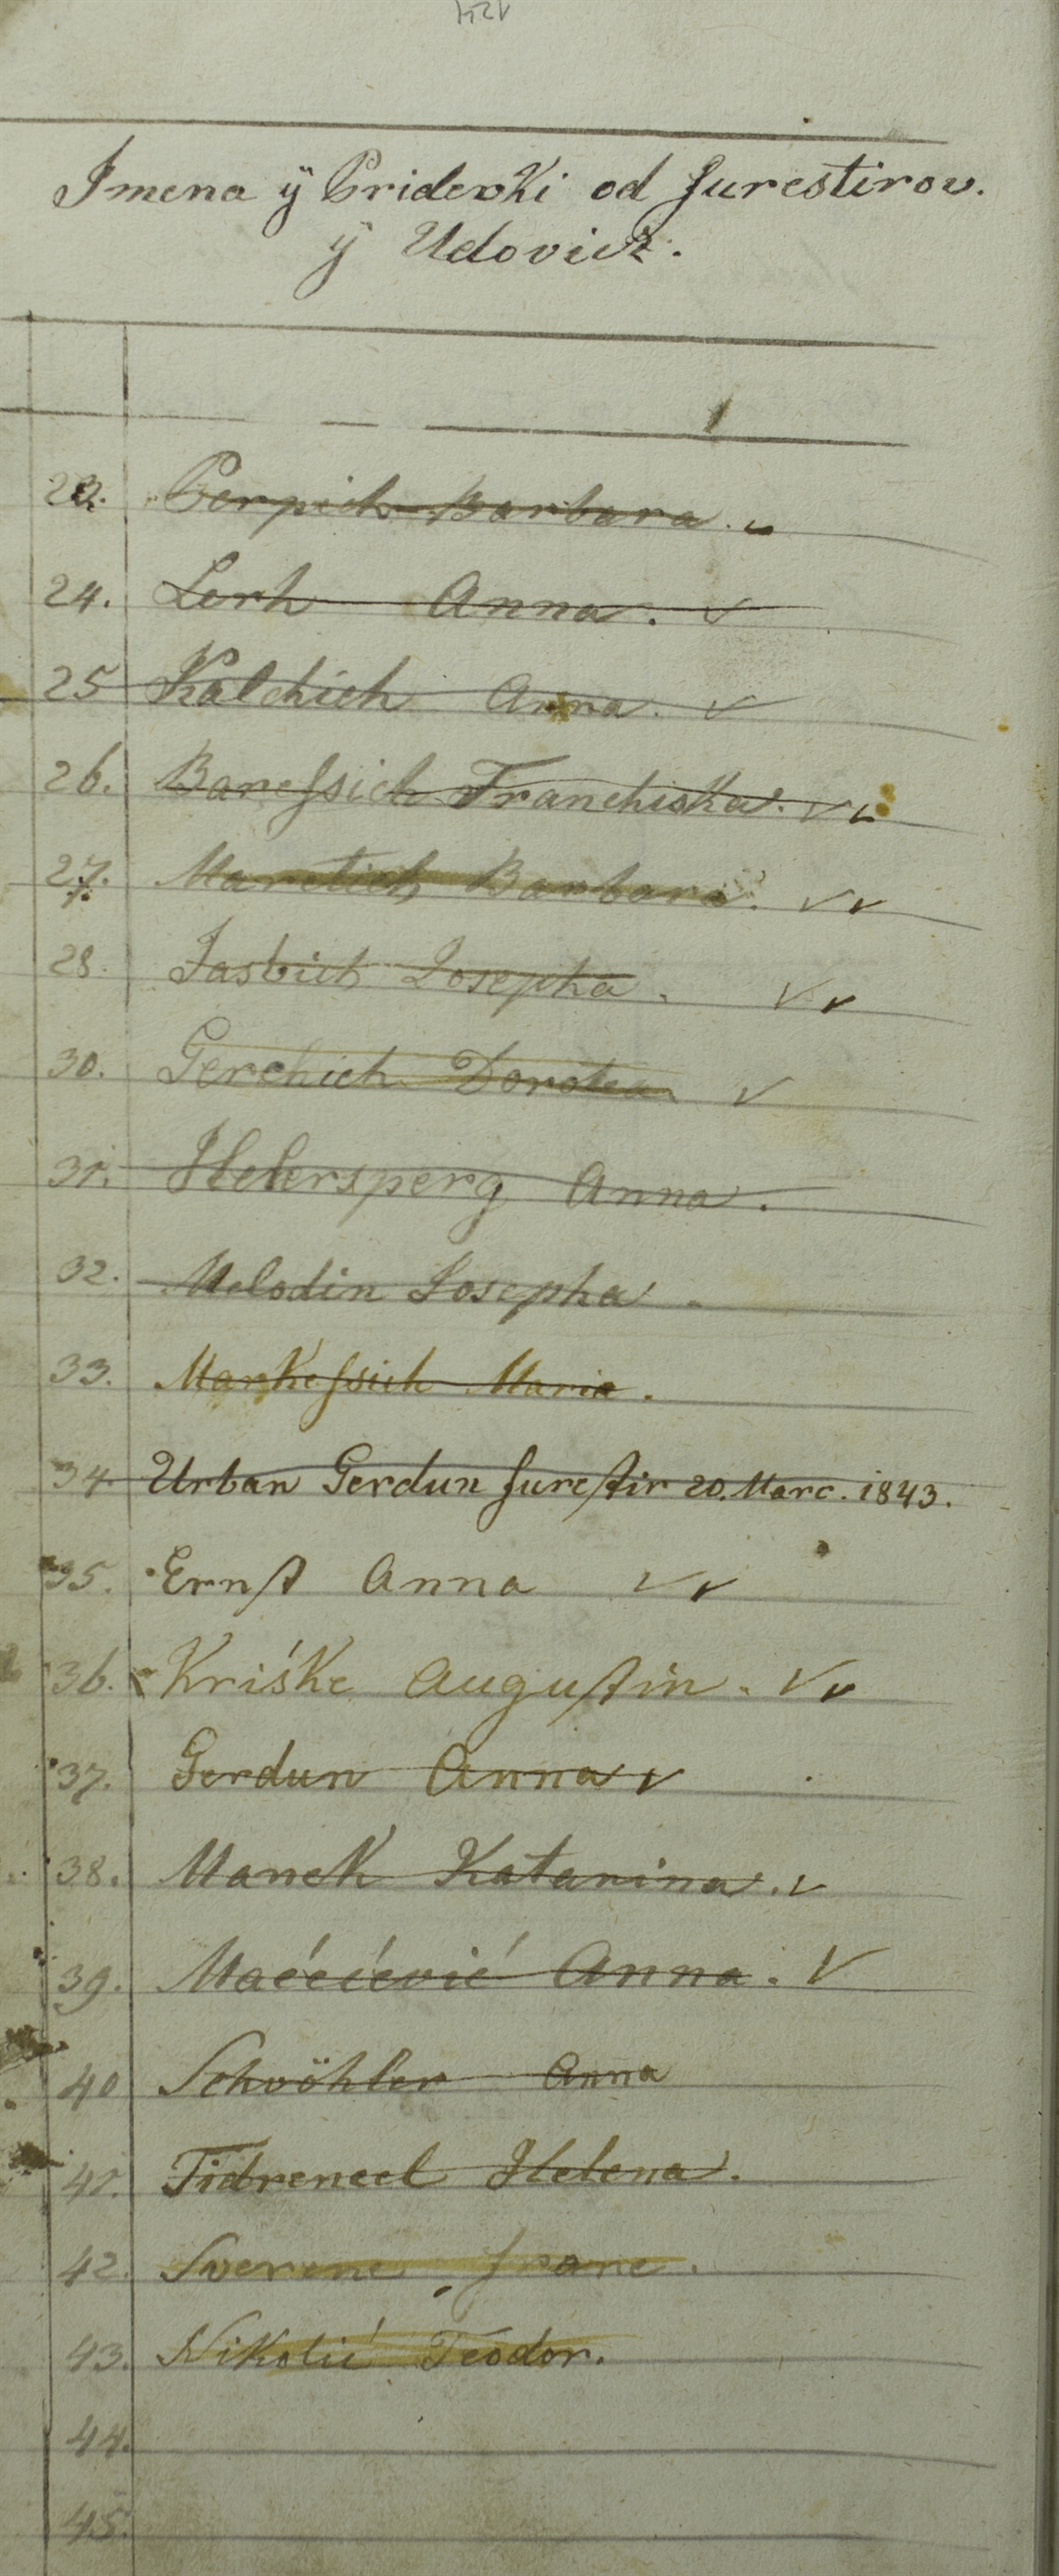 Imena ÿ Pridevki od furestirov.
ÿ Udovicz.
23. Perpich Barbara.
24. Lerh Anna.
25 Kalchich Anna.
26. Baressich Franchiska.
27. Maretich Barbara.
28. Jasbich Josepha.
30. Gerchich Dorotea
31. Helersperg Anna.
32. Melodin Josepha.
33. Markessich Maria.
34 Urban Gerdun furestir 20. Marc. 1843.
35. Ernst Anna
36. Kriśke Augustin.
37. Gerdun Anna
38. Manek Katarina.
39. Maćećević Anna.
40 Schvöhler Anna
41. Helena.
42. Sverene frane.
43. Nikolić Teodor.
44.
45.